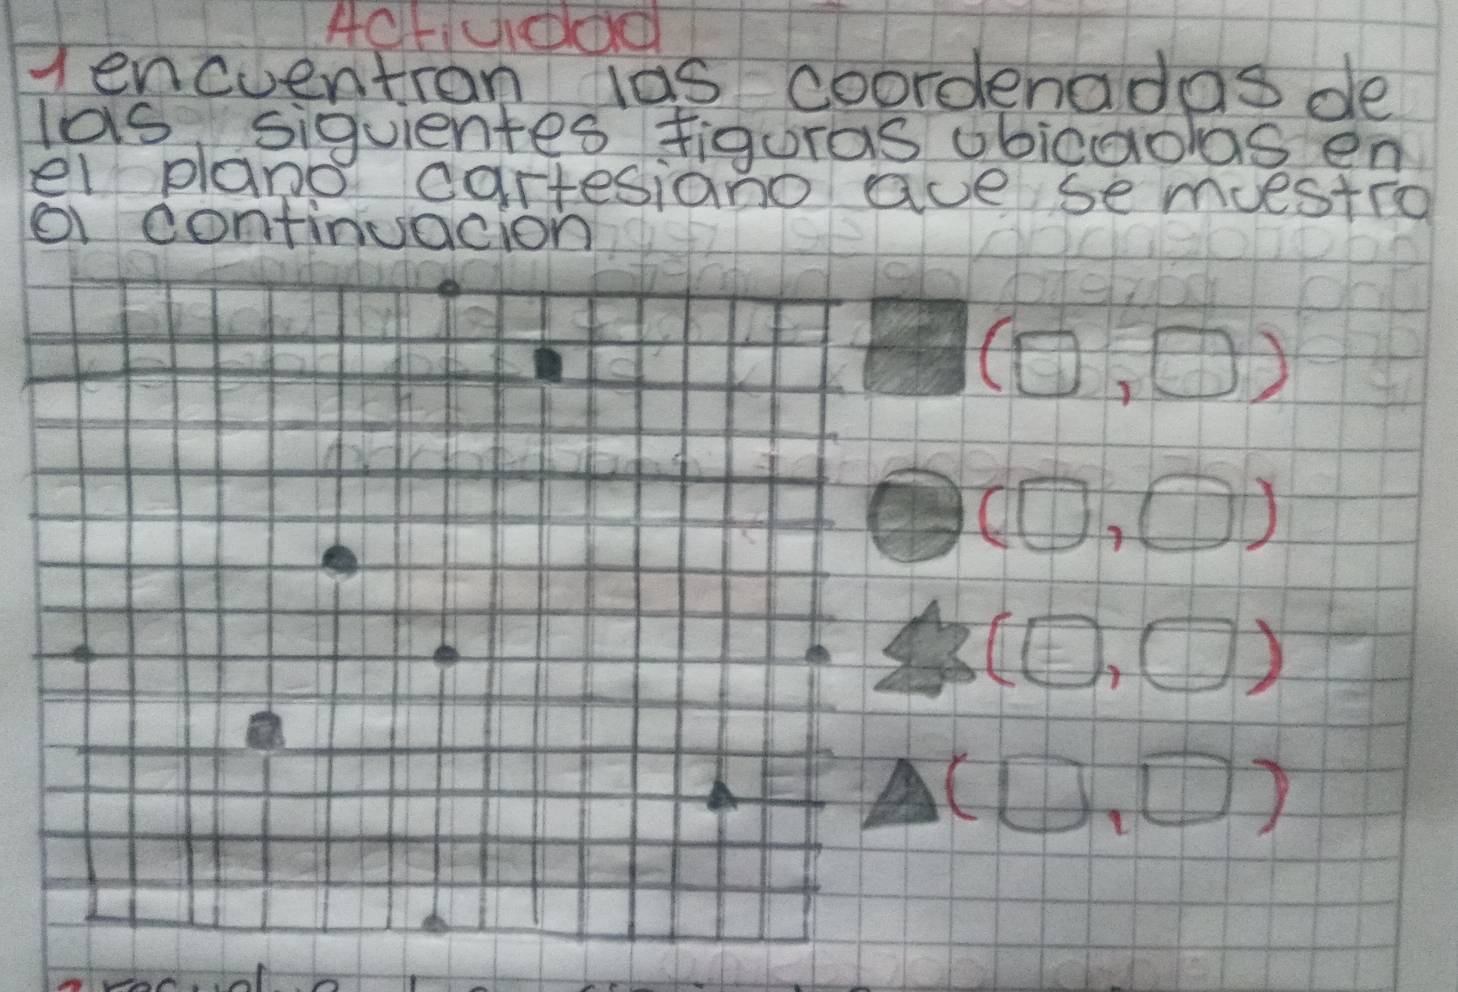 Actividad
1 encuentran las coordenadas de
las siguientes figuras ubicadas en
el plano cartesiano que se muestra
a continuacion
( , )
( , )
( , )
( , )